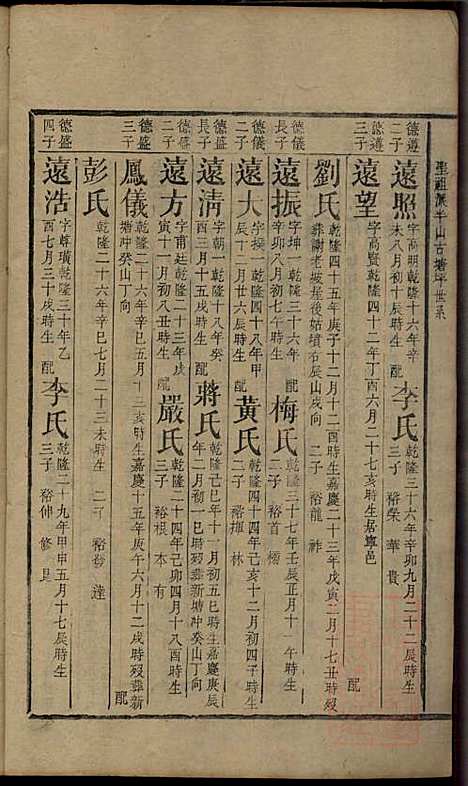 聖祖派半山古塘坪世系
德遵二子
遠照
字高明乾隆十六年辛未八月初十辰時生 配
李氏
乾隆三十六年辛卯九月二十二辰時生
三子 裕榮 華 貴
德遵三子
遠望
字高賢乾隆四十二年丁酉六月二十七亥時生居寧邑 配
劉氏
乾隆四十五年庚子十二月十二酉時生嘉慶二十三年戊寅二月十七丑時歿
葬謝老坡屋後姑墳右辰山戌向 二子 裕龍 祚
德儀長子
遠振
字坤一乾隆三十六年辛卯八月初七午時生 配
梅氏
乾隆三十七年壬辰正月十一午時生
二子 裕首
德儀二子
遠大
乾隆四十八年甲辰十二月廿六辰時生 配
黃氏
乾隆四十四年己亥十二月初四子時生
二子 裕輝 林
德盛長子
遠清
字朝一乾隆十八年癸酉三月十五戌時生 配
蔣氏
乾隆己巳年十一月初五巳時生嘉慶庚辰年二月初一巳時歿葬新塘冲癸山丁向
德盛二子
遠方
字甫廷乾隆二十三年戊寅十一月初六亥時生 配
嚴氏
乾隆二十四年己卯四月十八酉時生
三子 裕根 本 有
德盛三子
鳳儀
乾隆二十六年辛巳五月十三亥時生嘉慶十五年庚午六月十二戌時歿葬新塘冲癸山丁向 配
彭氏
乾隆二十六年辛巳七月二十三未時生 二子 裕發 達
德盛四子
遠浩
字尊璜乾隆三十年乙酉七月三十戌時生 配
李氏
乾隆二十九年甲申五月十七辰時生
三子 裕伸 修 昆